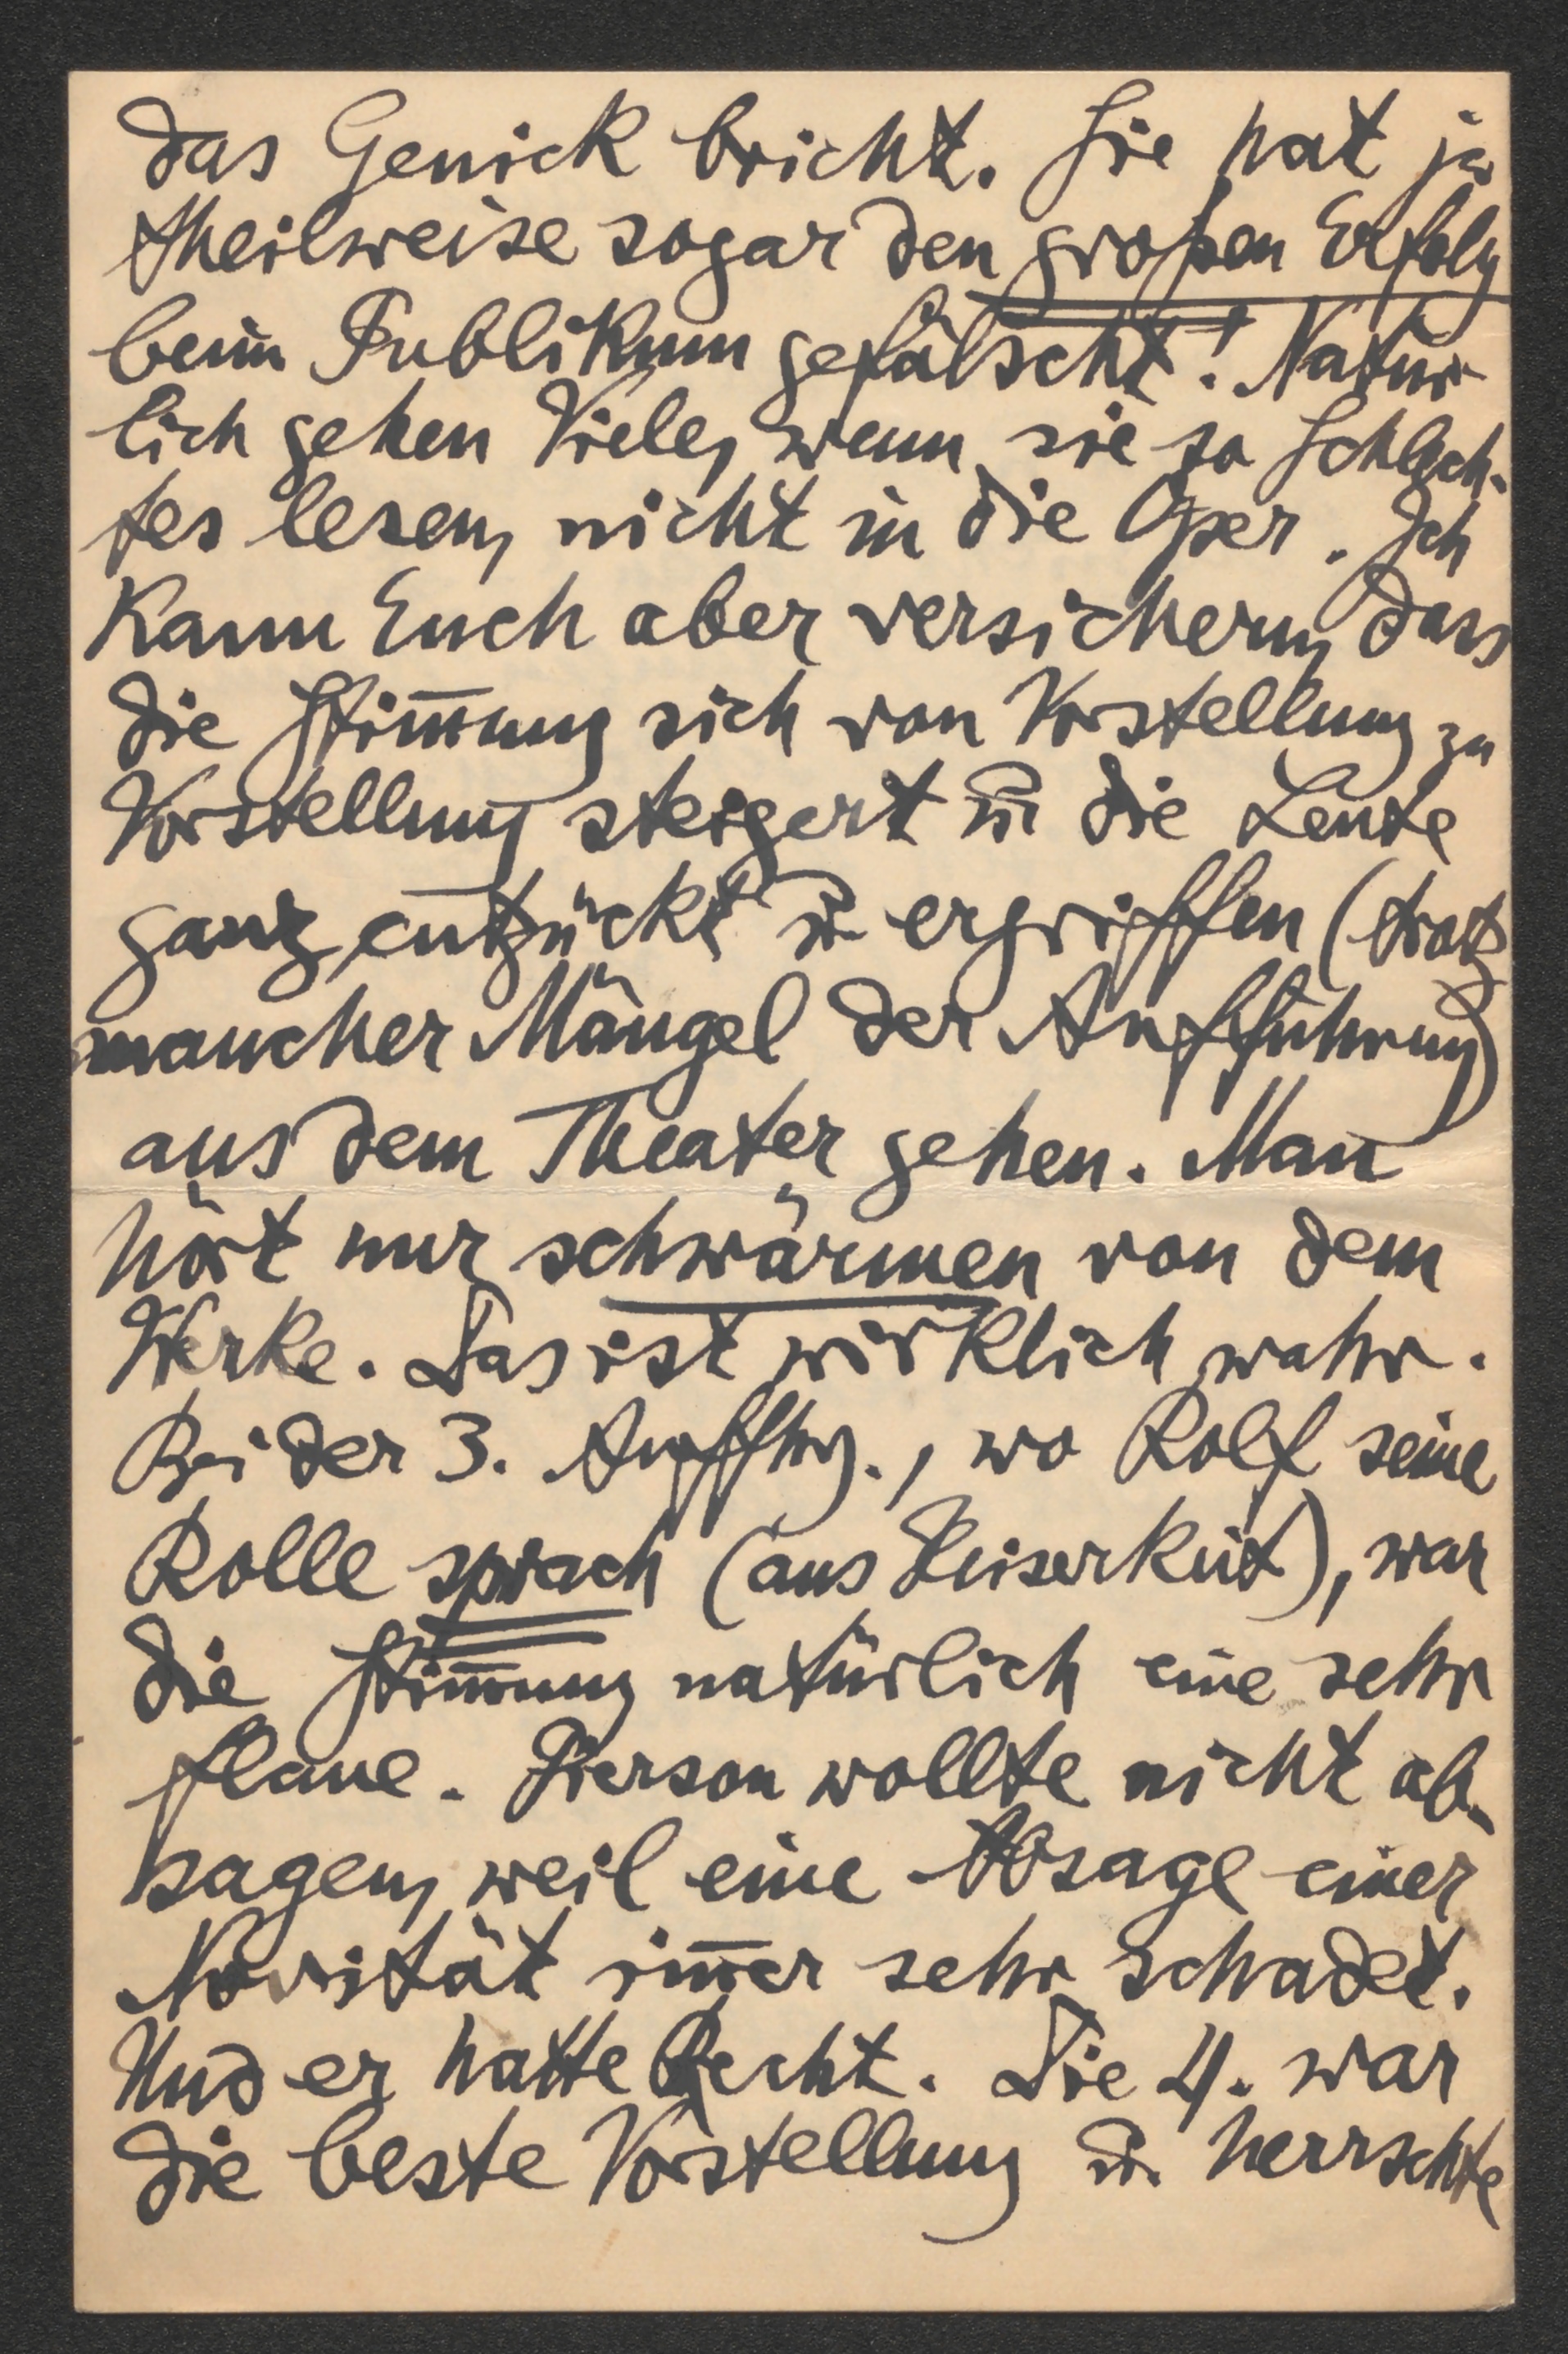 das Genick bricht. Sie hat ja
theilweise sogar den großen Erfolg
beim Publikum gefälscht! Natür-
lich gehen Viele, wenn sie so Schlech-
tes lesen, nicht in die Oper. Ich
kann Euch aber versichern, dass
die Stim̅ung sich von Vorstellung zu
Vorstellung steigert u. die Leute
ganz entzückt u. ergriffen (trotz
mancher Mängel der Aufführung)
aus dem Theater gehen. Man
hört nur schwärmen von dem
Werke. Das ist wirklich wahr.
Bei der 3. Auffhrg., wo Rolf seine
Rolle sprach (aus Heiserkeit), war
die Stim̅ung natürlich eine sehr
flaue. Pierson wollte nicht ab-
sagen, weil eine Absage einer
Novität im̅er sehr schadet.
Und er hatte Recht. Die 4. war
die beste Vorstellung u. herrschte